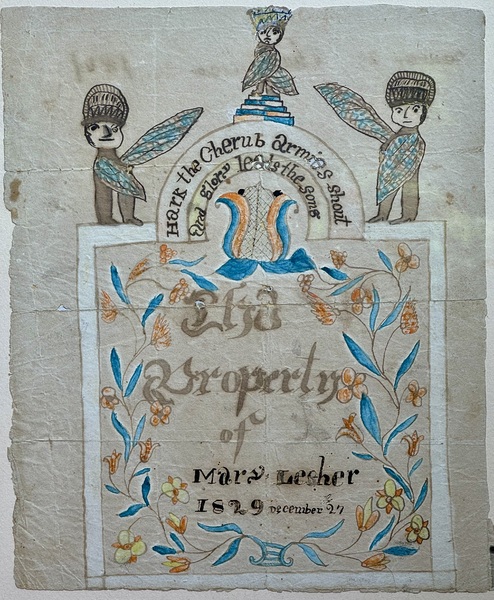 Hark the Cherub armies shout
And Glory leads the song
The
Property
of
Mary Lesher
1829 December 27